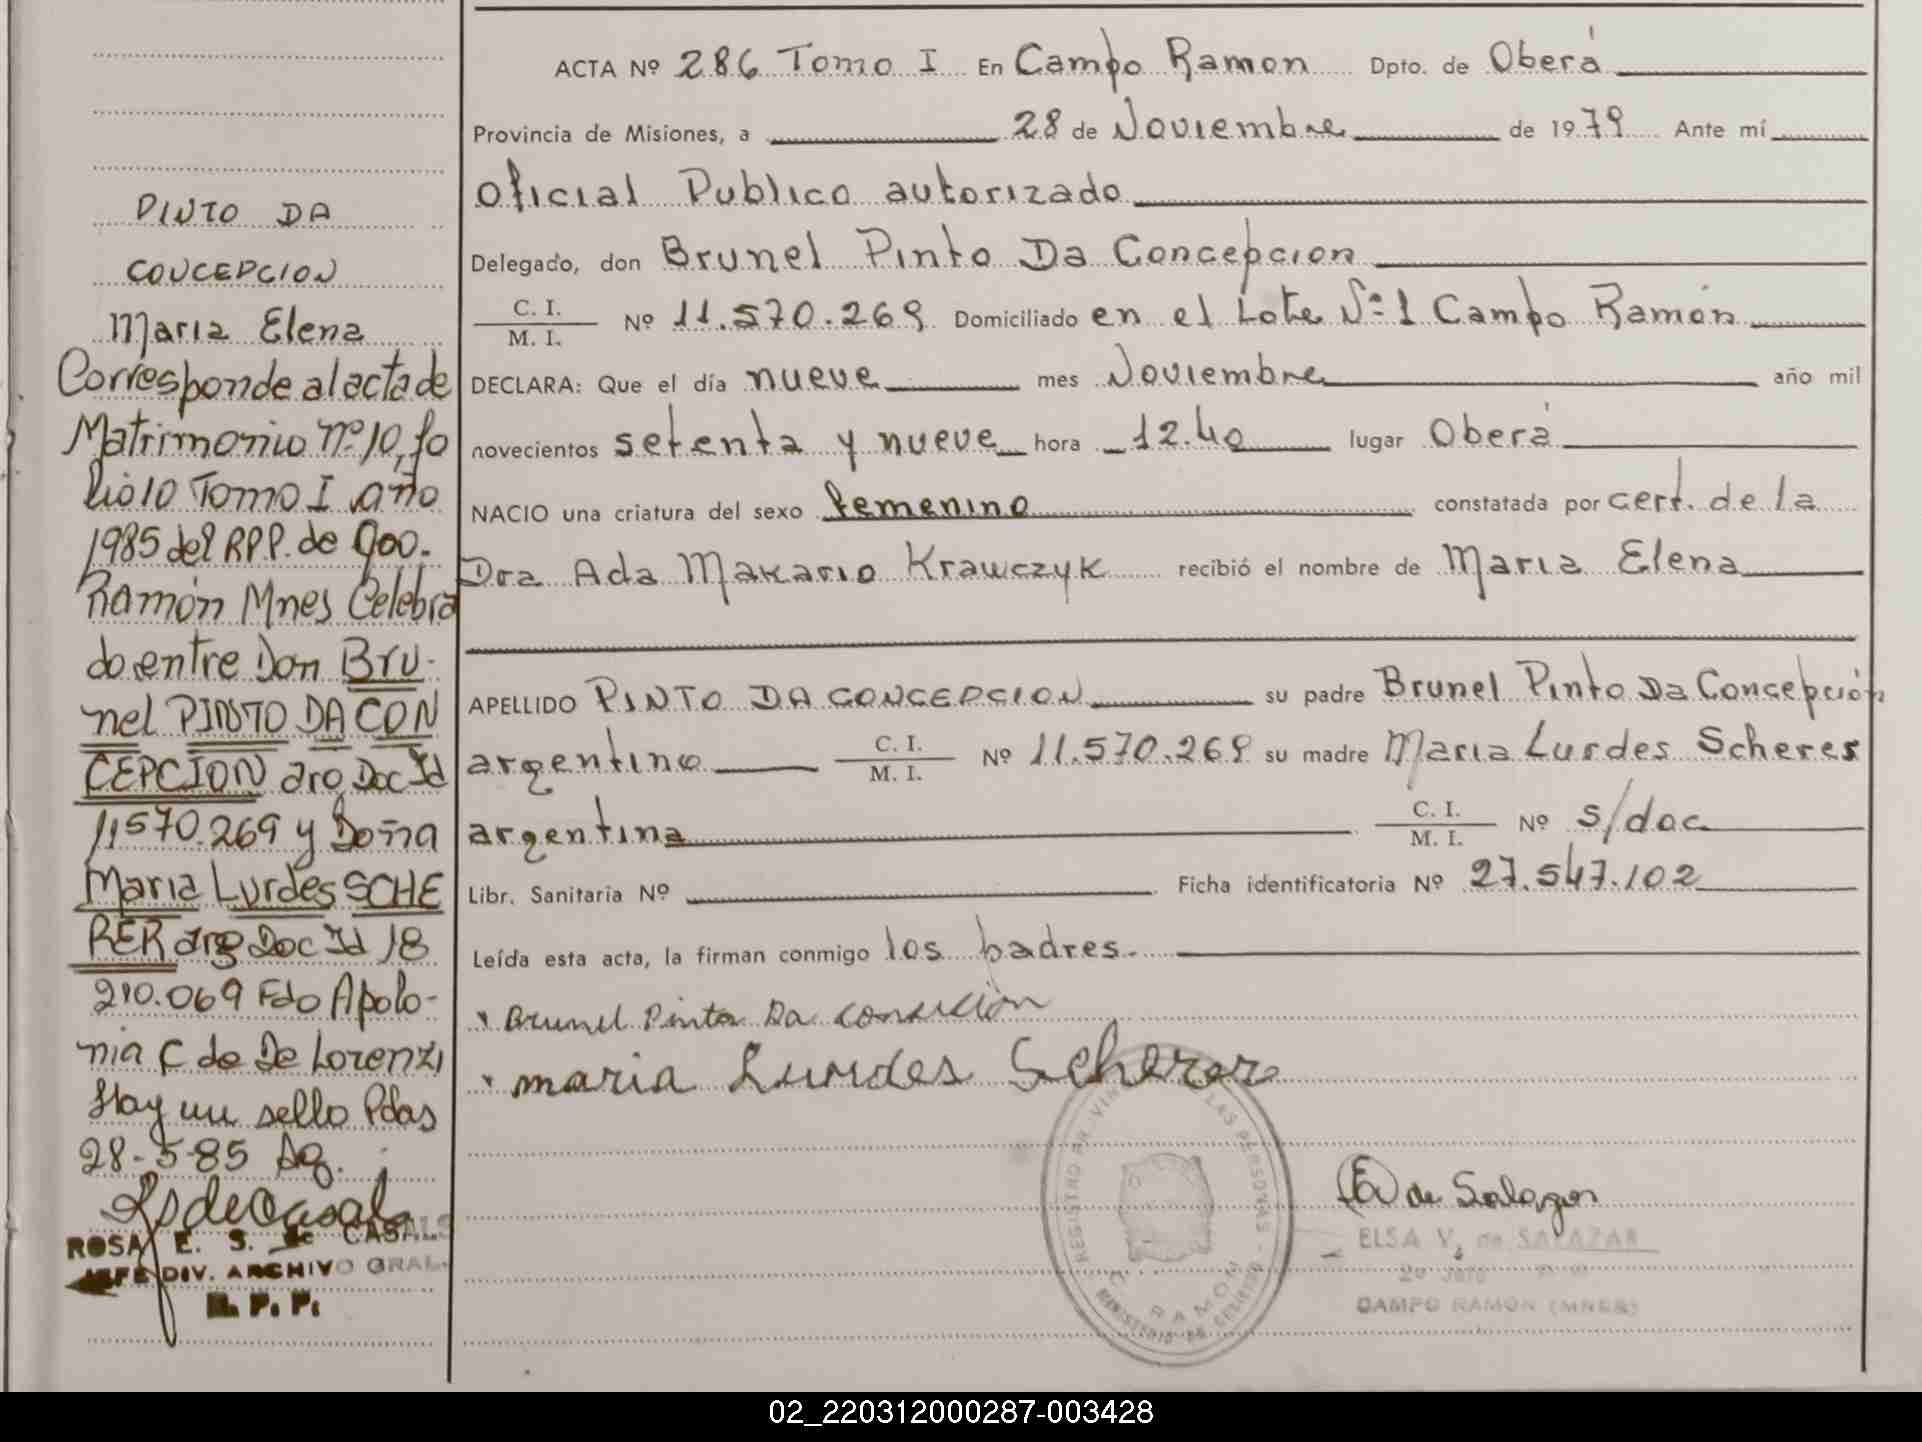 PINTO DA
CONCEPCION
Maria Elena
Corresponde al acta de
Matrimonio nº 10, fo
lio 10 Tomo I año
1985 del RPP. de Qoo.
Ramón Mnes Celebra
do entre Don Bru-
nel PINTO DA CON
CEPCION arg Doc Id
11570.269 y Doña
Maria Lurdes SCHE
RER arg Doc Id 18
210.069 Fdo Apolo-
nia C de De Lorenzi
Hay un sello Pdas
28-5-85
ROSA E. S. de CASALS
JEFE DIV. ARCHIVO GRAL.
R. P. P.
ACTA Nº 286 Tomo I En Campo Ramon Dpto. de Oberá
Provincia de Misiones, a 28 de Noviembre de 1979 Ante mí
Oficial Publico autorizado
Delegado, don Brunel Pinto Da Concepcion
C. I. / M. I. Nº 11.570.269 Domiciliado en el Lote Nº 1 Campo Ramón
DECLARA: Que el día nueve mes Noviembre año mil
novecientos setenta y nueve hora 12.40 lugar Oberá
NACIO una criatura del sexo femenino constatada por cert. de la
Dra Ada Makario Krawczyk recibió el nombre de Maria Elena
APELLIDO PINTO DA CONCEPCION su padre Brunel Pinto Da Concepción
argentino C. I. / M. I. Nº 11.570.269 su madre Maria Lurdes Scheres
argentina C. I. / M. I. Nº s/doc
Libr. Sanitaria Nº Ficha identificatoria Nº 27.547.102
Leída esta acta, la firman conmigo los padres.
Brunel Pinto Da
maria Lurdes Scherer
de Salazar
ELSA V. de SALAZAR
CAMPO RAMON (MNES)
02_220312000287-003428